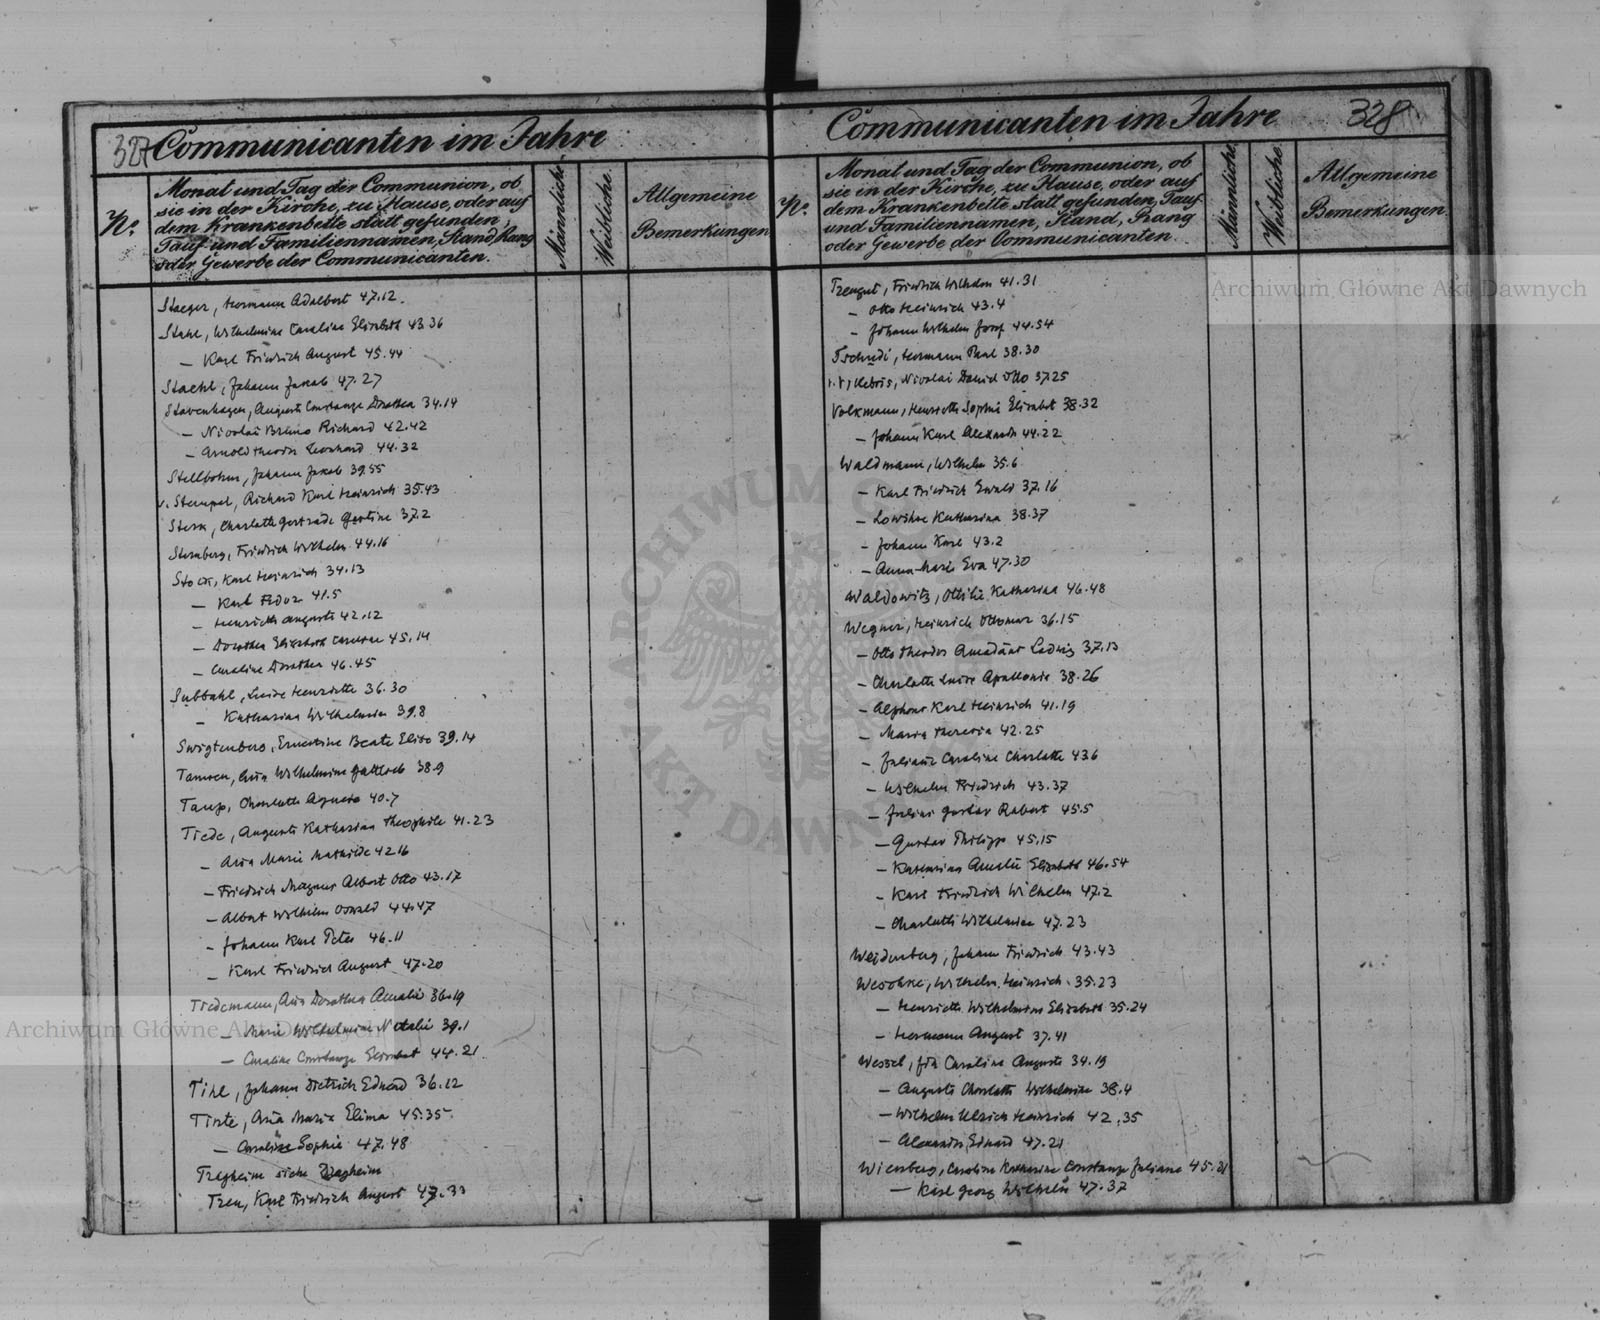 327 Communicanten im Jahre
No.
Monat und Tag der Communion, ob
sie in der Kirche, zu Hause, oder auf
dem Krankenbette statt gefunden,
Tauf- und Familiennamen, Stand, Rang
oder Gewerbe der Communicanten.
Männliche
Weibliche
Allgemeine
Bemerkungen
Staeger, Hermann Adalbert 47.12.
Stahl, Wilhelmine Caroline Elisabeth 43.36
— Karl Friedrich August 45.44
Staehl, Johann Jakob 47.27
Stavenhagen, Auguste Constanze Dorothea 34.14
— Nicolai Bruno Richard 42.42
— Arnold Theodor Leonhard 44.32
Stellbohm, Johann Jakob 39.55
v. Stempel, Richard Karl Heinrich 35.43
Stern, Charlotte Gertrude 37.2
Sternberg, Friedrich Wilhelm 44.16
Stock, Karl Heinrich 34.13
— Karl Fedor 41.5
— Henriette Auguste 42.12
— Dorothea Elisabeth 45.14
— Caroline Dorothea 46.45
Subbahl, Luise Henriette 36.30
— Katharina Wilhelmine 39.8
Swigtenberg, Ernestine Beate Elise 39.14
Tamsen, Anna Wilhelmine 38.9
Taup, Charlotte Agnese 40.7
Tiede, Auguste Katharina Theophile 41.23
— Anna Marie Mathilde 42.16
— Friedrich Magnus Albert Otto 43.17
— Albert Wilhelm Oswald 44.47
— Johann Karl Peter 46.11
— Karl Friedrich August 47.20
Tiedemann, Anna Dorothea Amalie 36.19
— Marie Wilhelmine Natalie 39.1
— Caroline Constanze Elisabet 44.21.
Tihl, Johann Dietrich Eduard 36.12
Tinte, Anna Maria Elima 45.35
— Caroline Sophie 47.48
Tregheim siehe Dregheim
Treu, Karl Friedrich August 47.33
Communicanten im Jahre 328
No.
Monat und Tag der Communion, ob
sie in der Kirche, zu Hause, oder auf
dem Krankenbette statt gefunden, Tauf
und Familiennamen, Stand, Rang
oder Gewerbe der Communicanten
Männliche
Weibliche
Allgemeine
Bemerkungen.
Treugut, Friedrich Wilhelm 41.31
— Otto Heinrich 43.4
— Johann Wilhelm Josef 44.54
Tschudi, Hermann Paul 38.30
Nicolai Daniel Otto 37.25
Volkmann, Henriette Sophie Elisabet 38.32
— Johann Karl Alexander 44.22
Waldmann, Wilhelm 35.6
— Karl Friedrich Ewald 37.16
— Lowise Katharina 38.37
— Johann Karl 43.2
— Anna Marie Eva 47.30
Waldowitz, Ottilie Katharina 46.48
Wegner, Heinrich Ottomar 36.15
— Otto Theodor Amadäus Ludwig 37.13
— Charlotte Luise Apollonia 38.26
— Alphons Karl Heinrich 41.19
— Maria Theresia 42.25
— Juliane Caroline Charlotte 43.6
— Wilhelm Friedrich 43.37
— Julius Gustav Robert 45.5
— Gustav Philipp 45.15
— Katharina Amalie Elisabeth 46.54
— Karl Friedrich Wilhelm 47.2
— Charlotte Wilhelmine 47.23
Weidenberg, Johann Friedrich 43.43
Weschke, Wilhelm Heinrich 35.23
— Henriette Wilhelmine Elisabeth 35.24
— Hermann August 37.41
Wessel, Caroline Auguste 34.19
— Auguste Charlotte Wilhelmine 38.4
— Wilhelm Ulrich Heinrich 42.35
— Alexander Eduard 47.21
Wiersberg, Caroline Katharine Constanze Juliane 45.21
— Karl Georg Wilhelm 47.37
Archiwum Główne Akt Dawnych
Archiwum Główne Akt Dawnych